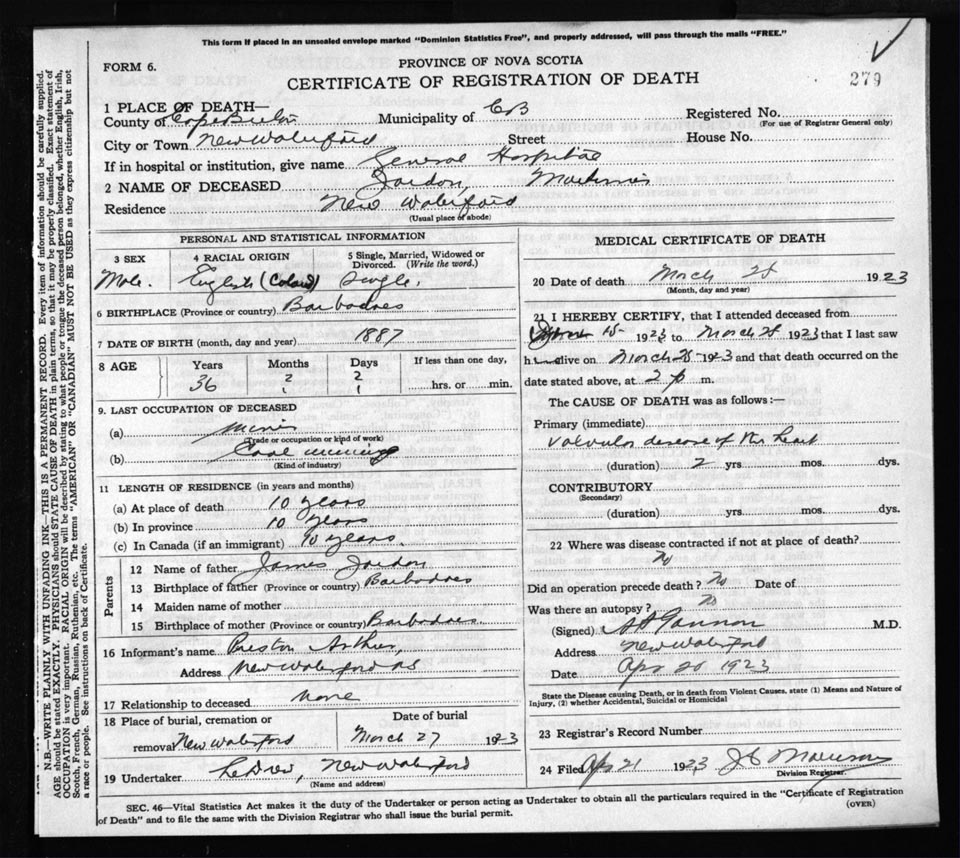 This form if placed in an unsealed envelope marked "Dominion Statistics Free", and properly addressed, will pass through the mails "FREE."
FORM 6.
PROVINCE OF NOVA SCOTIA
CERTIFICATE OF REGISTRATION OF DEATH
279
1 PLACE OF DEATH—
County of Cape Breton Municipality of CB Registered No.
(For use of Registrar General only)
City or Town New Waterford Street House No.
If in hospital or institution, give name General Hospital
2 NAME OF DECEASED Jordon,
Residence New Waterford
(Usual place of abode)
PERSONAL AND STATISTICAL INFORMATION
3 SEX 4 RACIAL ORIGIN 5 Single, Married, Widowed or Divorced. (Write the word.)
Male. English (Colord) Single.
6 BIRTHPLACE (Province or country) Barbadoes
7 DATE OF BIRTH (month, day and year) 1887
8 AGE Years Months Days If less than one day,
36 ? ? hrs. or min.
9. LAST OCCUPATION OF DECEASED
(a) Miner
(Trade or occupation or kind of work)
(b) Coal mining
(Kind of industry)
11 LENGTH OF RESIDENCE (in years and months)
(a) At place of death 10 years
(b) In province 10 years
(c) In Canada (if an immigrant) 10 years.
Parents
12 Name of father James Jordon
13 Birthplace of father (Province or country) Barbadoes
14 Maiden name of mother
15 Birthplace of mother (Province or country) Barbadoes.
16 Informant's name Preston Arthur,
Address New Waterford NS
17 Relationship to deceased None
18 Place of burial, cremation or Date of burial
removal New Waterford March 27 1923
19 Undertaker LeDrew, New Waterford
(Name and address)
MEDICAL CERTIFICATE OF DEATH
20 Date of death March 28 1923
(Month, day and year)
21 I HEREBY CERTIFY, that I attended deceased from
15 1923 to March 28 1923 that I last saw
h alive on March 28 1923 and that death occurred on the
date stated above, at 2 p m.
The CAUSE OF DEATH was as follows:—
Primary (immediate)
Valvular disease of the heart
(duration) 2 yrs. mos. dys.
CONTRIBUTORY
(Secondary)
(duration) yrs. mos. dys.
22 Where was disease contracted if not at place of death?
No
Did an operation precede death? No Date of
Was there an autopsy? No
(Signed) M.D.
Address New Waterford
Date Apr 20 1923
State the Disease causing Death, or in death from Violent Causes, state (1) Means and Nature of
Injury, (2) whether Accidental, Suicidal or Homicidal
23 Registrar's Record Number
24 Filed Apr 21 1923 J C Morrison
Division Registrar.
SEC. 46—Vital Statistics Act makes it the duty of the Undertaker or person acting as Undertaker to obtain all the particulars required in the "Certificate of Registration
of Death" and to file the same with the Division Registrar who shall issue the burial permit.
(OVER)
N.B.—WRITE PLAINLY WITH UNFADING INK—THIS IS A PERMANENT RECORD. Every item of information should be carefully supplied.
AGE should be stated EXACTLY. PHYSICIANS should STATE CAUSE OF DEATH in plain terms, so that it may be properly classified. Exact statement of
OCCUPATION is very important. RACIAL ORIGIN will be described by stating to what people or tongue the deceased person belonged, whether English, Irish,
Scotch, French, German, Russian, Ruthenian, etc. The terms "AMERICAN" OR "CANADIAN" MUST NOT BE USED as they express citizenship but not
a race or people. See instructions on back of Certificate.